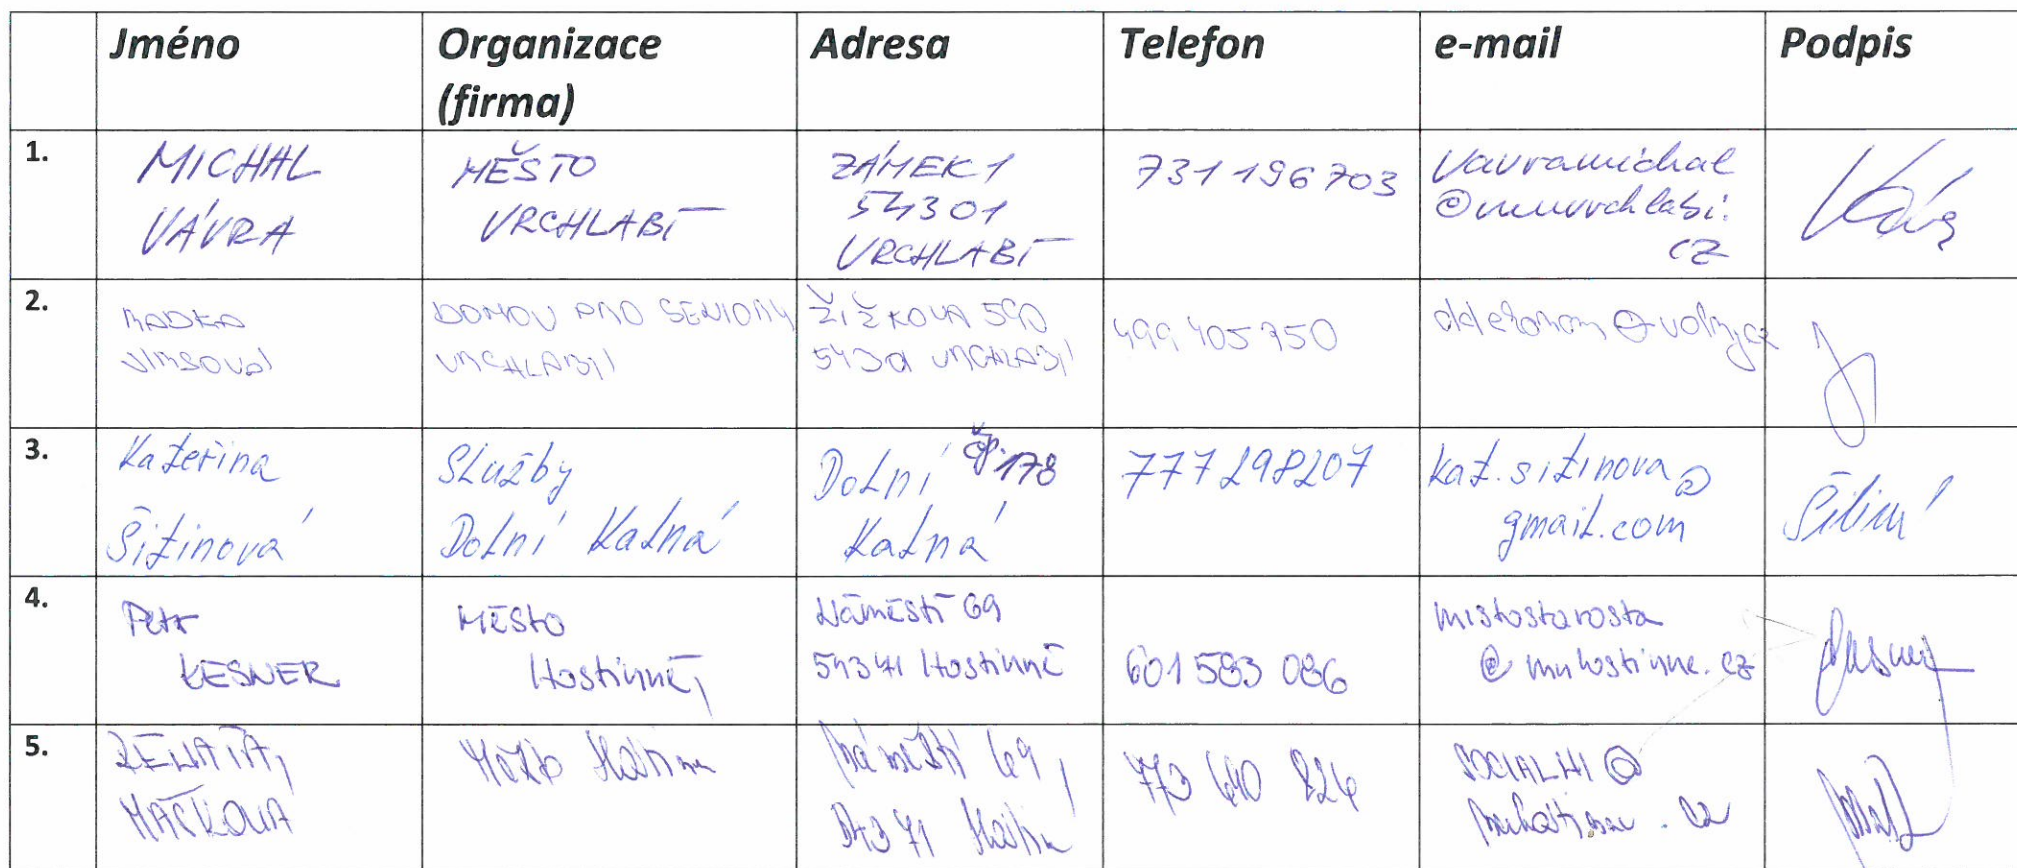 Jméno Organizace (firma) Adresa Telefon e-mail Podpis
1.
MICHAL
VÁVRA
MĚSTO
VRCHLABÍ
ZÁMEK 1
54301
VRCHLABÍ
731 196 703
vavramichal
@muvrchlabi.
cz
2.
RADKA
DOMOV PRO SENIORY
VRCHLABÍ
ŽIŽKOVA 590
54301 VRCHLABÍ
499 405 750
3.
Kateřina
Služby
Dolní Kalná
Dolní čp. 178
Kalná
777 298207
gmail.com
4.
Petr
KESNER
MĚSto
Hostinné,
Náměstí 69
54371 Hostinné
601 583 086
mistostarosta
@ muhostinne.cz
5.
RENATA,
MAČKOVÁ
Město Hostinné
Náměstí 69,
543 71 Hostinné
SOCIALNI @
muhostinne.cz